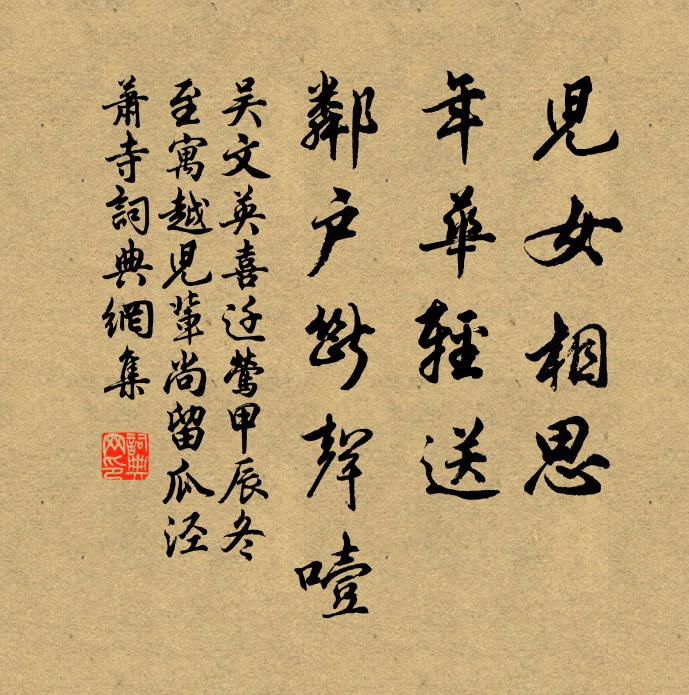 兒女相思
年華輕送
鄰戶斷聲噎
吴文英喜迁鶯甲辰冬
至寓越兒輩尚留瓜泾
蕭寺詞典網集
詞典
网印